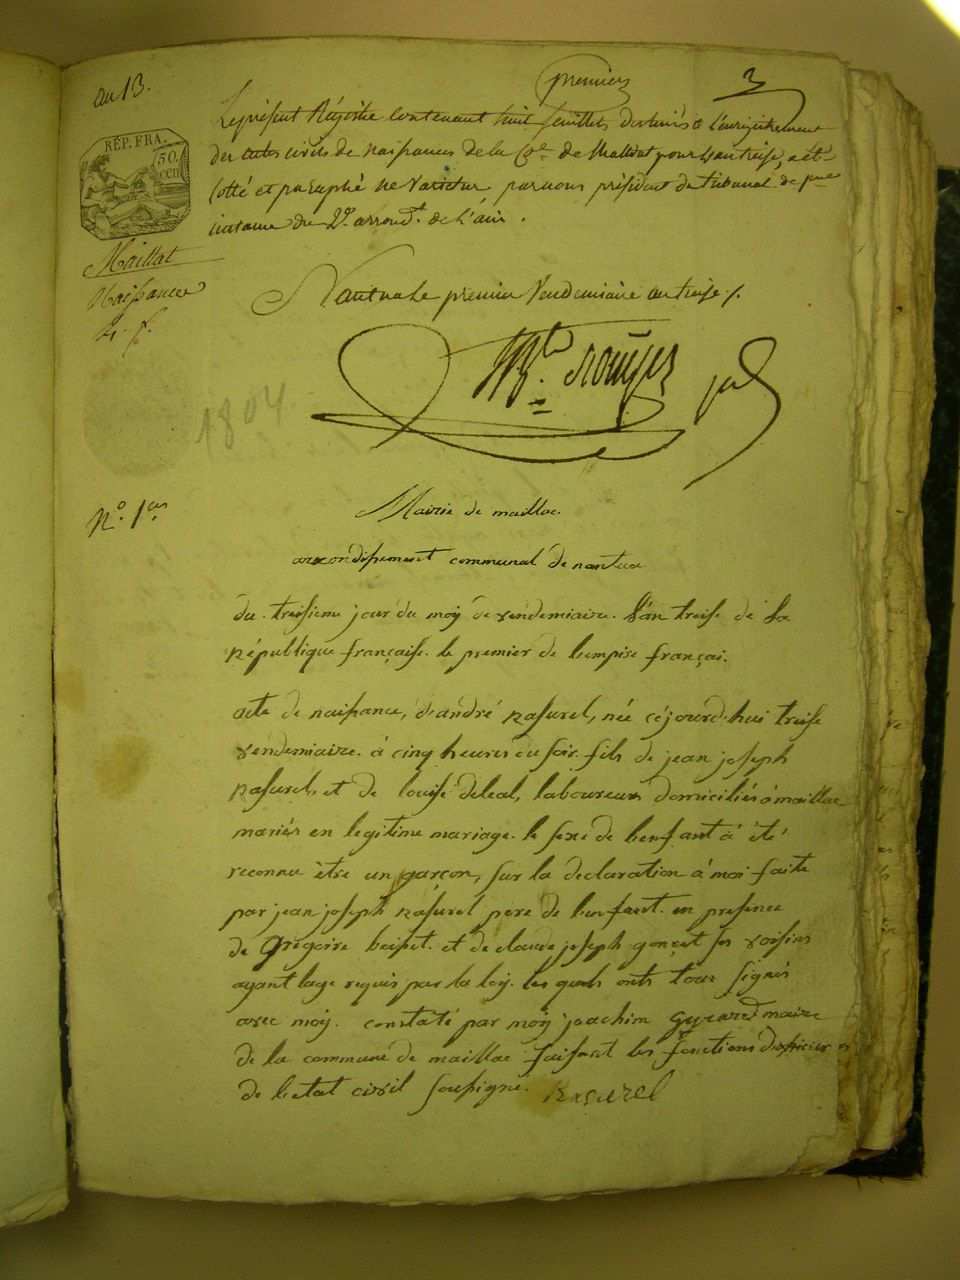 an 13.
premier
3
RÉP. FRA.
50
cen
Le présent Régistre contenant huit feuillets destinés à l'enrigistrement
des actes civils de naissances de la Cne. de Maillat pour l'an treise, a été
Cotté et paraphé ne varietur par nous président du tribunal de pre
instance du 2e. arrondt. de l'ain.
Maillat
Naissances
Nantua le premier Vendemiaire an treise ./.
1804
No. 1er
Mairie de maillac.
arrondissement communal de nantua
du troisieme jour du moy de vendemiaire. l'an treise de la
république française. le premier de l'empire françai.
acte de naissance, d'andré rasurel, née cejourd'hui treise
vendemiaire. à cinq heures du soir. fils de jean joseph
rasurel, et de louise deleal, laboureurs domiciliés à maillac
mariés en legitime mariage. le sexe de l'enfant à été
reconnu être un garçon, sur la declaration à moi faite
par jean joseph rasurel pere de l'enfant. en presence
de Grégoire et de claude joseph goncet ses voisins
ayant lage requis par la loy. les quels onts tous signés
avec moy. constaté par moy joachim maire
de la commune de maillac faisant les fonctions d'officier
de letat civil soussigné. Rasurel